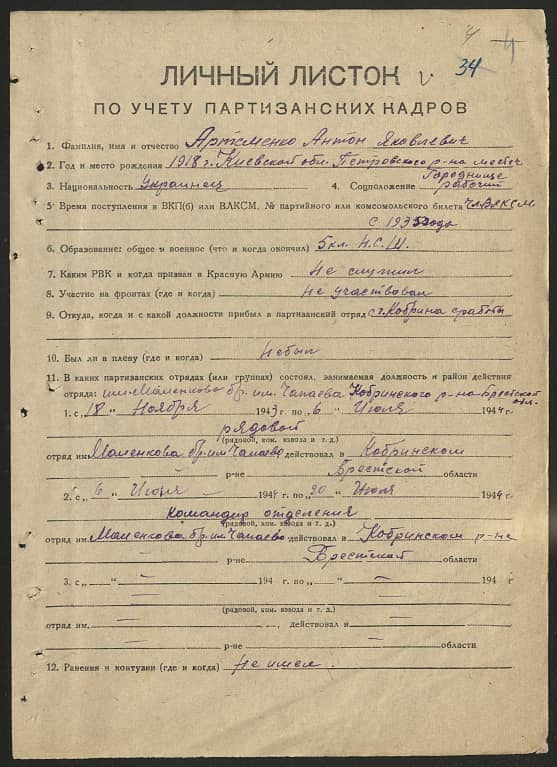 34
ЛИЧНЫЙ ЛИСТОК
ПО УЧЕТУ ПАРТИЗАНСКИХ КАДРОВ
1. Фамилия, имя и отчество Артеменко Антон Яковлевич
2. Год и место рождения 1918 г. Киевской обл. Петровского р-на местеч
Городнище
3. Национальность Украинец 4. Соцположение рабочий
5. Время поступления в ВКП(б) или ВЛКСМ, № партийного или комсомольского билета чл. ВЛКСМ
с 1935 года
6. Образование: общее и военное (что и когда окончил) 5 кл. Н.С.Ш.
7. Каким РВК и когда призван в Красную Армию не служил
8. Участие на фронтах (где и когда) не участвовал
9. Откуда, когда и с какой должности прибыл в партизанский отряд с г. Кобрина с работы
10. Был ли в плену (где и когда) не был
11. В каких партизанских отрядах (или группах) состоял, занимаемая должность и район действия
отряда: им. Маленкова бр. им. Чапаева Кобринского р-на Брестской обл.
1. с „18“ Ноября 1943 г. по „6“ Июля 1944 г.
рядовой
(рядовой, ком. взвода и т. д.)
отряд им. Маленкова бр. им. Чапаева действовал в Кобринском
р-не Брестской области
2. с „6“ Июля 1944 г. по „20“ Июля 1944 г.
Командир отделения
(рядовой, ком. взвода и т. д.)
отряд им. Маленкова бр. им. Чапаева действовал в Кобринском р-не
р-не Брестской области
3. с „—“ — 194 г. по „ “ — 194 г.
(рядовой, ком. взвода и т. д.)
отряд им. — , действовал в —
— р-не — области
12. Ранения и контузии (где и когда) не имел.